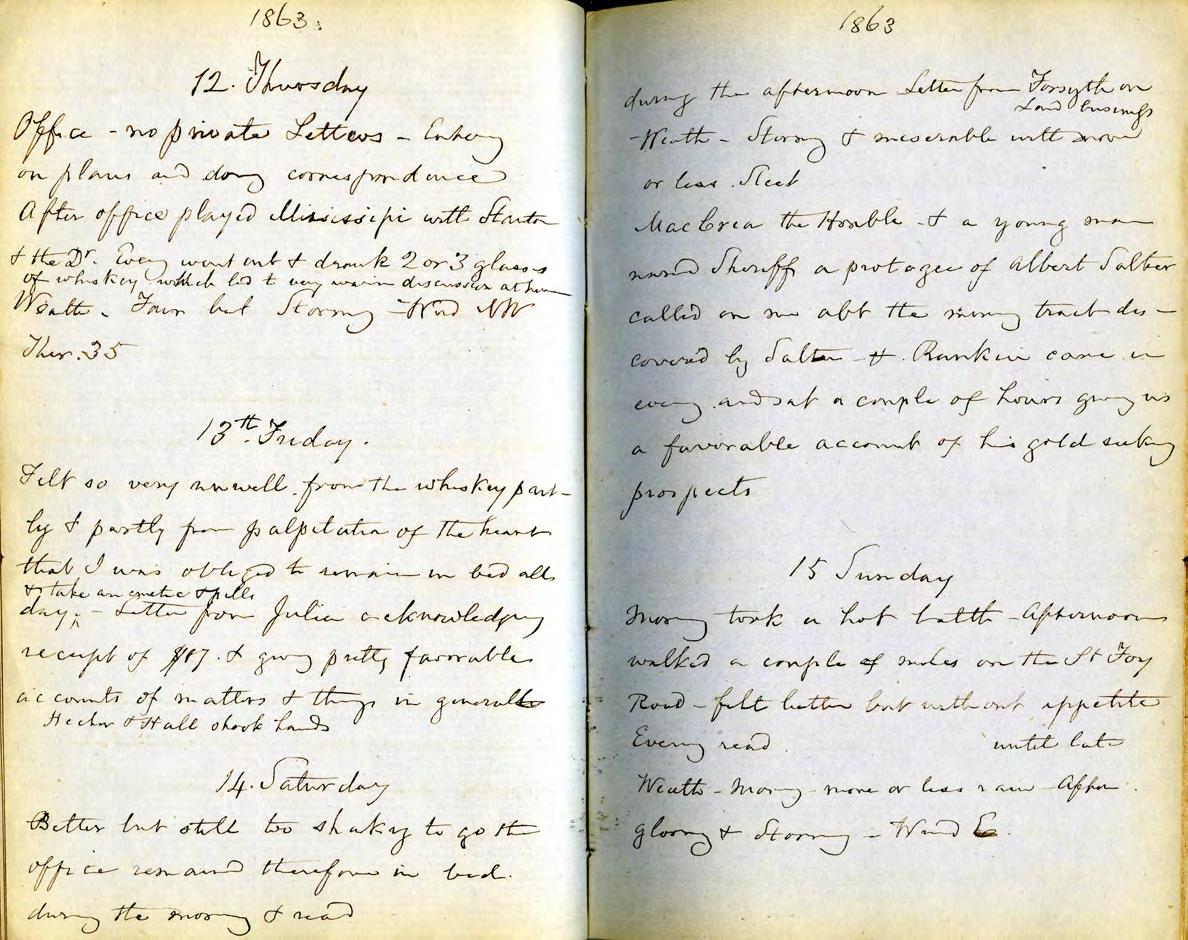 1863.
12. Thursday
Office - no private Letters - Entering
on plans and doing correspondence
After office played Mississipi with Stanton
& the Dr. Eveng went out & drank 2 or 3 glasses
of whiskey which led to very warm discussion at home
Weath - Fair but Stormy - Wind NW
Ther. 35
13th Friday.
Felt so very unwell from the whiskey part-
ly & partly from palpitation of the heart
that I was obliged to remain in bed all
& take an emetic & pills
day. - Letter from Julia acknowledging
receipt of $17. & giving pretty favorable
accounts of matters & things in general
Hector & Hall shook hands
14. Saturday
Better but still too shaky to go the
office remained therefore in bed.
during the morng & read
1863
during the afternoon Letter from Forsyth on
Land business
Weath - Stormy & miserable with more
or less Sleet
MacCrea the Honble & a young man
named Sheriff a protagee of Albert Salter
called on me abt the mining tract dis-
covered by Salter - H. Rankin came in
eveng and sat a couple of hours giving us
a favorable account of his gold seeking
prospects
15 Sunday
Morng took a hot bath - Afternoon
walked a couple of miles on the St Foy
Road - felt better but without appetite
Eveng read until late
Weath - Morng more or less rain - Aftern.
gloomy & Stormy - Wind E.